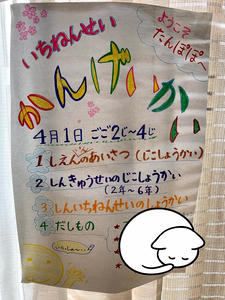 ようこそ
たんぽぽへ
いちねんせい
かんげいかい
4月1日 ごご2じ~4じ
1 しえんのあいさつ(じこしょうかい)
2 しんきゅうせいのじこしょうかい
(2年~6年)
3 しんいちねんせいのしょうかい
4 だしもの